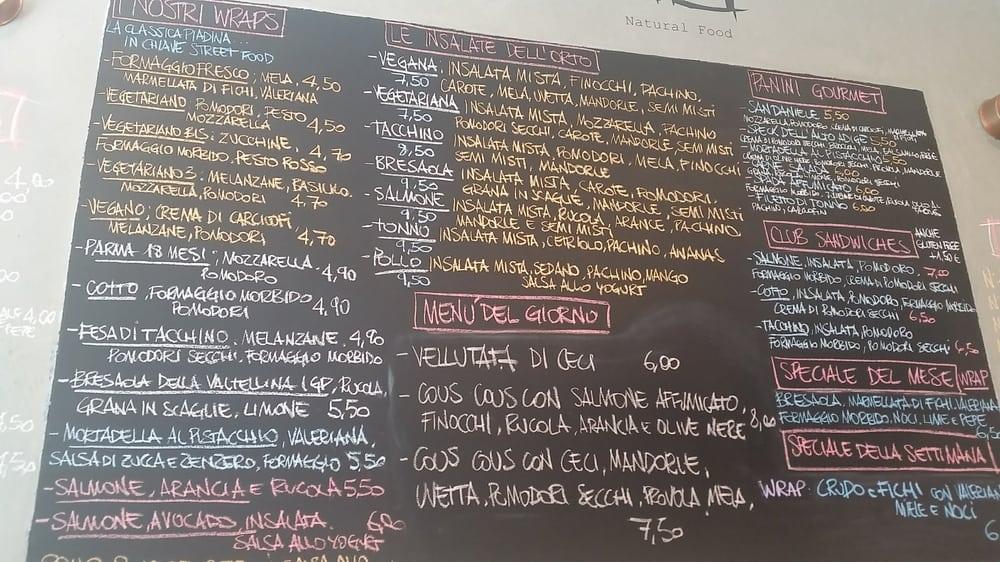 Natural Food
I NOSTRI WRAPS
LA CLASSICA PIADINA...
IN CHIAVE STREET FOOD
-FORMAGGIO FRESCO; MELA, 4,50
MARMELLATA DI FICHI, VALERIANA
-VEGETARIANO, POMODORI, PESTO
MOZZARELLA 4,50
-VEGETARIANO BIS: ZUCCHINE, 4,70
FORMAGGIO MORBIDO, PESTO ROSSO
-VEGETARIANO 3: MELANZANE, BASILICO,
MOZZARELLA, POMODORI 4,70
-VEGANO; CREMA DI CARCIOFI
MELANZANE, POMODORI 4,70
-PARMA 18 MESI; MOZZARELLA
POMODORO 4,90
-COTTO, FORMAGGIO MORBIDO
POMODORI 4,90
-FESA DI TACCHINO, MELANZANE, 4,90
POMODORI SECCHI, FORMAGGIO MORBIDO
-BRESAOLA DELLA VALTELLINA IGP, RUCOLA,
GRANA IN SCAGLIE, LIMONE 5,50
-MORTADELLA AL PISTACCHIO, VALERIANA,
SALSA DI ZUCCA E ZENZERO, FORMAGGIO 5,50
-SALMONE, ARANCIA E RUCOLA 5,50
-SALMONE, AVOCADO, INSALATA. 6,00
SALSA ALLO YOGURT
LE INSALATE DELL'ORTO
-VEGANA, INSALATA MISTA, FINOCCHI, PACHINO,
7,50 CAROTE, MELA, UVETTA, MANDORLE, SEMI MISTI
-VEGETARIANA INSALATA MISTA, MOZZARELLA, PACHINO
7,50 POMODORI SECCHI, CAROTE, MANDORLE, SEMI MISTI
-TACCHINO INSALATA MISTA, POMODORI, MELA, FINOCCHI
8,50 SEMI MISTI, MANDORLE
-BRESAOLA INSALATA MISTA, CAROTE, POMODORI,
9,50 GRANA IN SCAGLIE, MANDORLE, SEMI MISTI
-SALMONE INSALATA MISTA, RUCOLA, ARANCE, PACHINO,
9,50 MANDORLE E SEMI MISTI
-TONNO INSALATA MISTA, CETRIOLO, PACHINO, ANANAS
9,50
-POLLO INSALATA MISTA, SEDANO, PACHINO, MANGO
9,50 SALSA ALLO YOGURT
MENU' DEL GIORNO
- VELLUTATA DI CECI 6,00
- COUS COUS CON SALMONE AFFUMICATO,
FINOCCHI, RUCOLA, ARANCIA E OLIVE NERE 8,00
- COUS COUS CON CECI, MANDORLE,
UVETTA, POMODORI SECCHI, PROVOLA, MELA,
7,50
PANINI GOURMET
-SAN DANIELE 5,50
-SPECK DELL'ALTO ADIGE 5,50
-MORTADELLA AL PISTACCHIO 5,50
6,00
6,00
-FILETTO DI TONNO 6,00
CLUB SANDWICHES
ANCHE
GLUTEN FREE
+1,50 €
-SALMONE, INSALATA, POMODORO, 7,00
FORMAGGIO MORBIDO, CREMA DI POMODORI SECCHI
-COTTO, INSALATA, POMODORO, FORMAGGIO MORBIDO
CREMA DI POMODORI SECCHI 6,50
-TACCHINO, INSALATA, POMODORO
FORMAGGIO MORBIDO, POMODORI SECCHI 6,50
SPECIALE DEL MESE WRAP
BRESAOLA, MARMELLATA DI FICHI, VALERIANA
FORMAGGIO MORBIDO, NOCI, LIME E PEPE
SPECIALE DELLA SETTIMANA
WRAP: CRUDO E FICHI CON VALERIAN
MIELE E NOCI
6